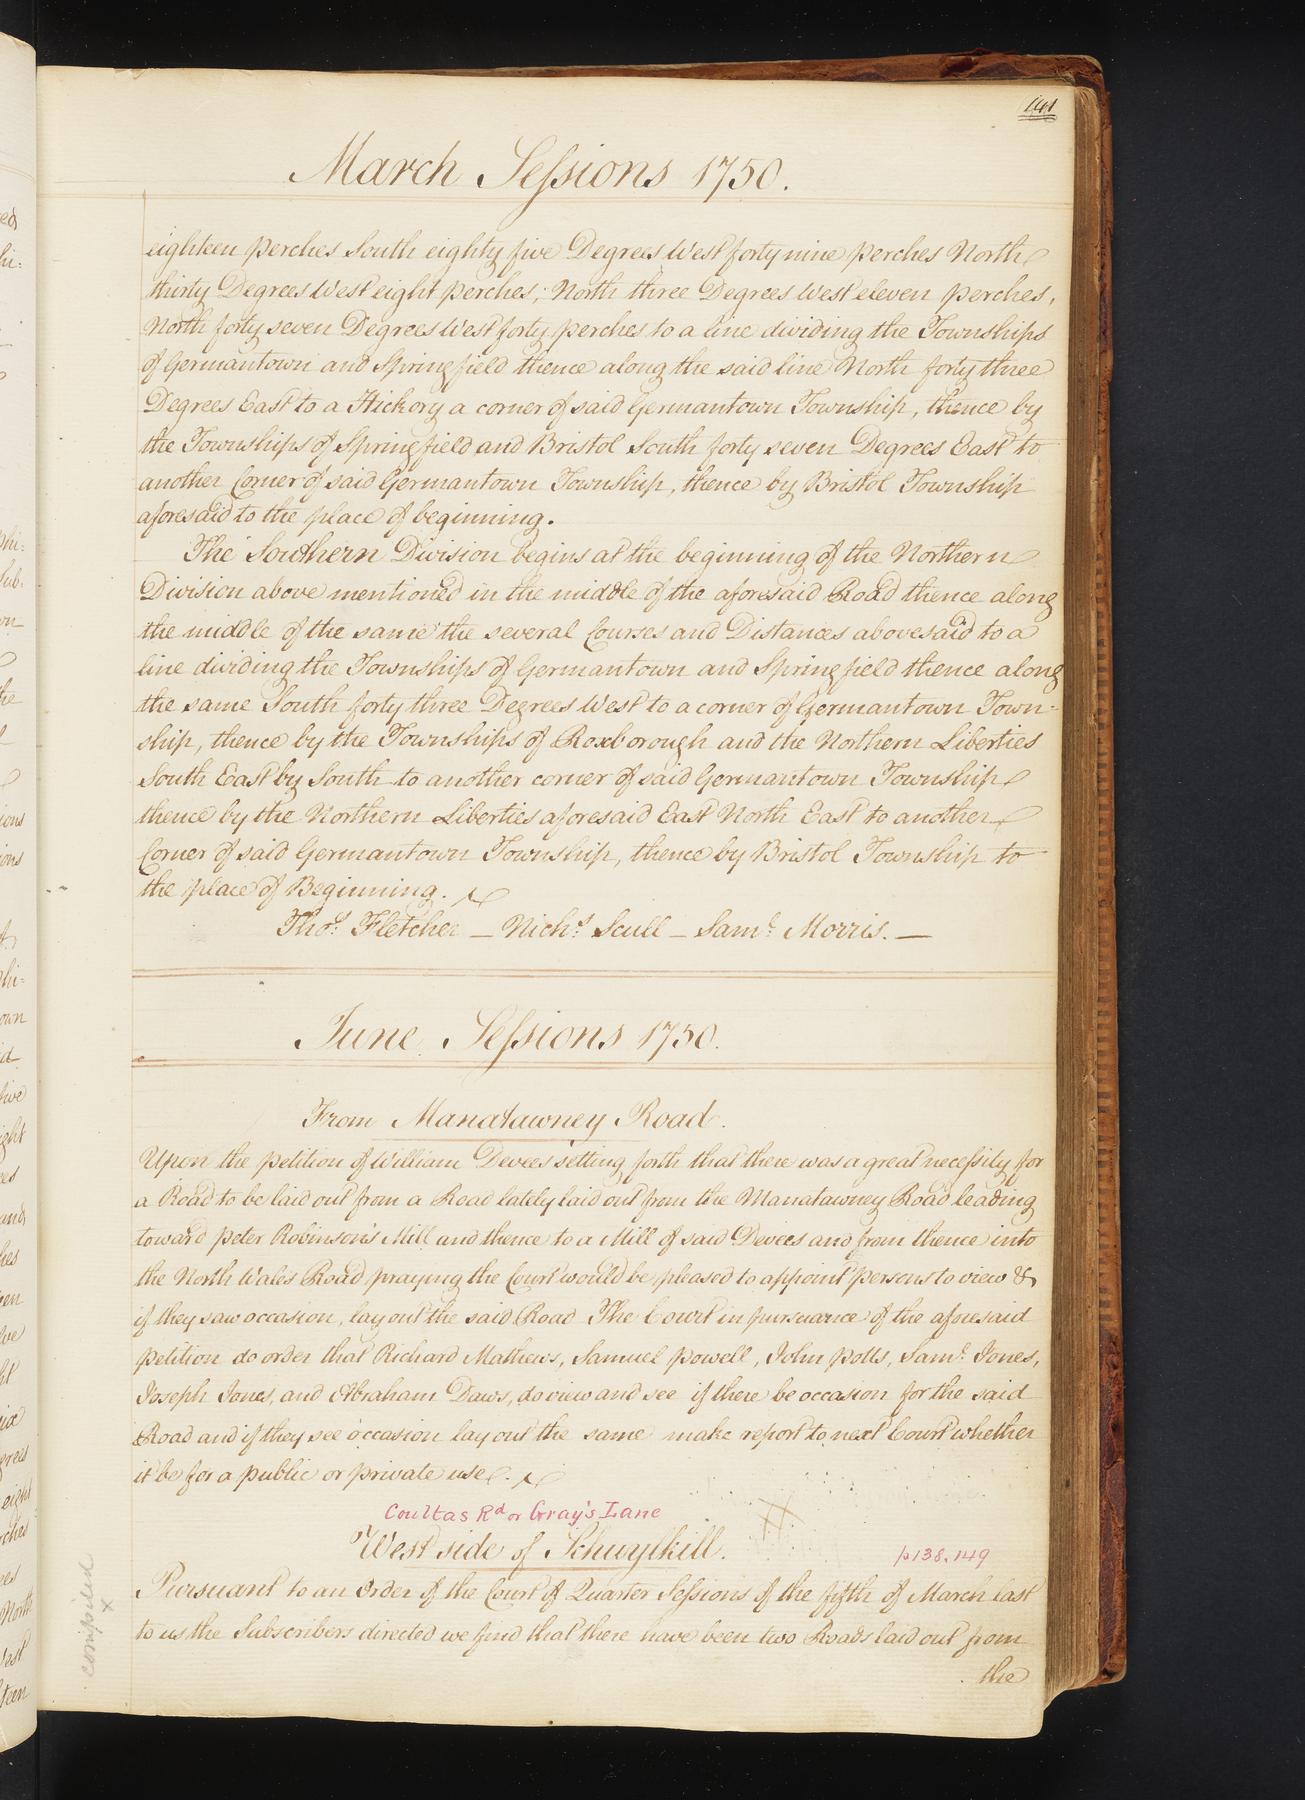 141
March Sessions 1750.
eighteen perches South eighty five Degrees West forty nine perches North
thirty Degrees West eight perches; North three Degrees West eleven perches,
North forty seven Degrees West forty perches to a line dividing the Townships
of Germantown and Springfield thence along the said line North forty three
Degrees East to a Hickory a corner of said Germantown Township, thence by
the Townships of Springfield and Bristol South forty seven Degrees East to
another Corner of said Germantown Township, thence by Bristol Township
aforesaid to the place of beginning.
The Southern Division begins at the beginning of the Northern
Division above mentioned in the middle of the aforesaid Road thence along
the middle of the same the several Courses and Distances abovesaid to a
line dividing the Townships of Germantown and Springfield thence along
the same South forty three Degrees West to a corner of Germantown Town-
ship, thence by the Townships of Roxborough and the Northern Liberties
South East by South to another corner of said Germantown Township
thence by the Northern Liberties aforesaid East North East to another
Corner of said Germantown Township, thence by Bristol Township to
the place of Beginning.
Thos. Fletcher – Nichs. Scull – Saml. Morris. –
June Sessions 1750.
From Manatawney Road.
Upon the petition of William Devees setting forth that there was a great necessity for
a Road to be laid out from a Road lately laid out from the Manatawney Road leading
toward peter Robinson's Mill and thence to a Mill of said Devees and from thence into
the North Wales Road praying the Court would be pleased to appoint persons to view &
if they saw occasion, lay out the said Road The Court in pursuance of the aforesaid
petition do order that Richard Mathews, Samuel powell, John potts, Saml. Jones,
Joseph Jones, and Abraham Daws, do view and see if there be occasion for the said
Road and if they see occasion lay out the same make report to next Court whether
it be for a public or private use.
Coultas Rd or Gray's Lane
West side of Schuylkill.
p138, 149
Pursuant to an Order of the Court of Quarter Sessions of the fifth of March last
to us the Subscribers directed we find that there have been two Roads laid out from
the
compiled
x